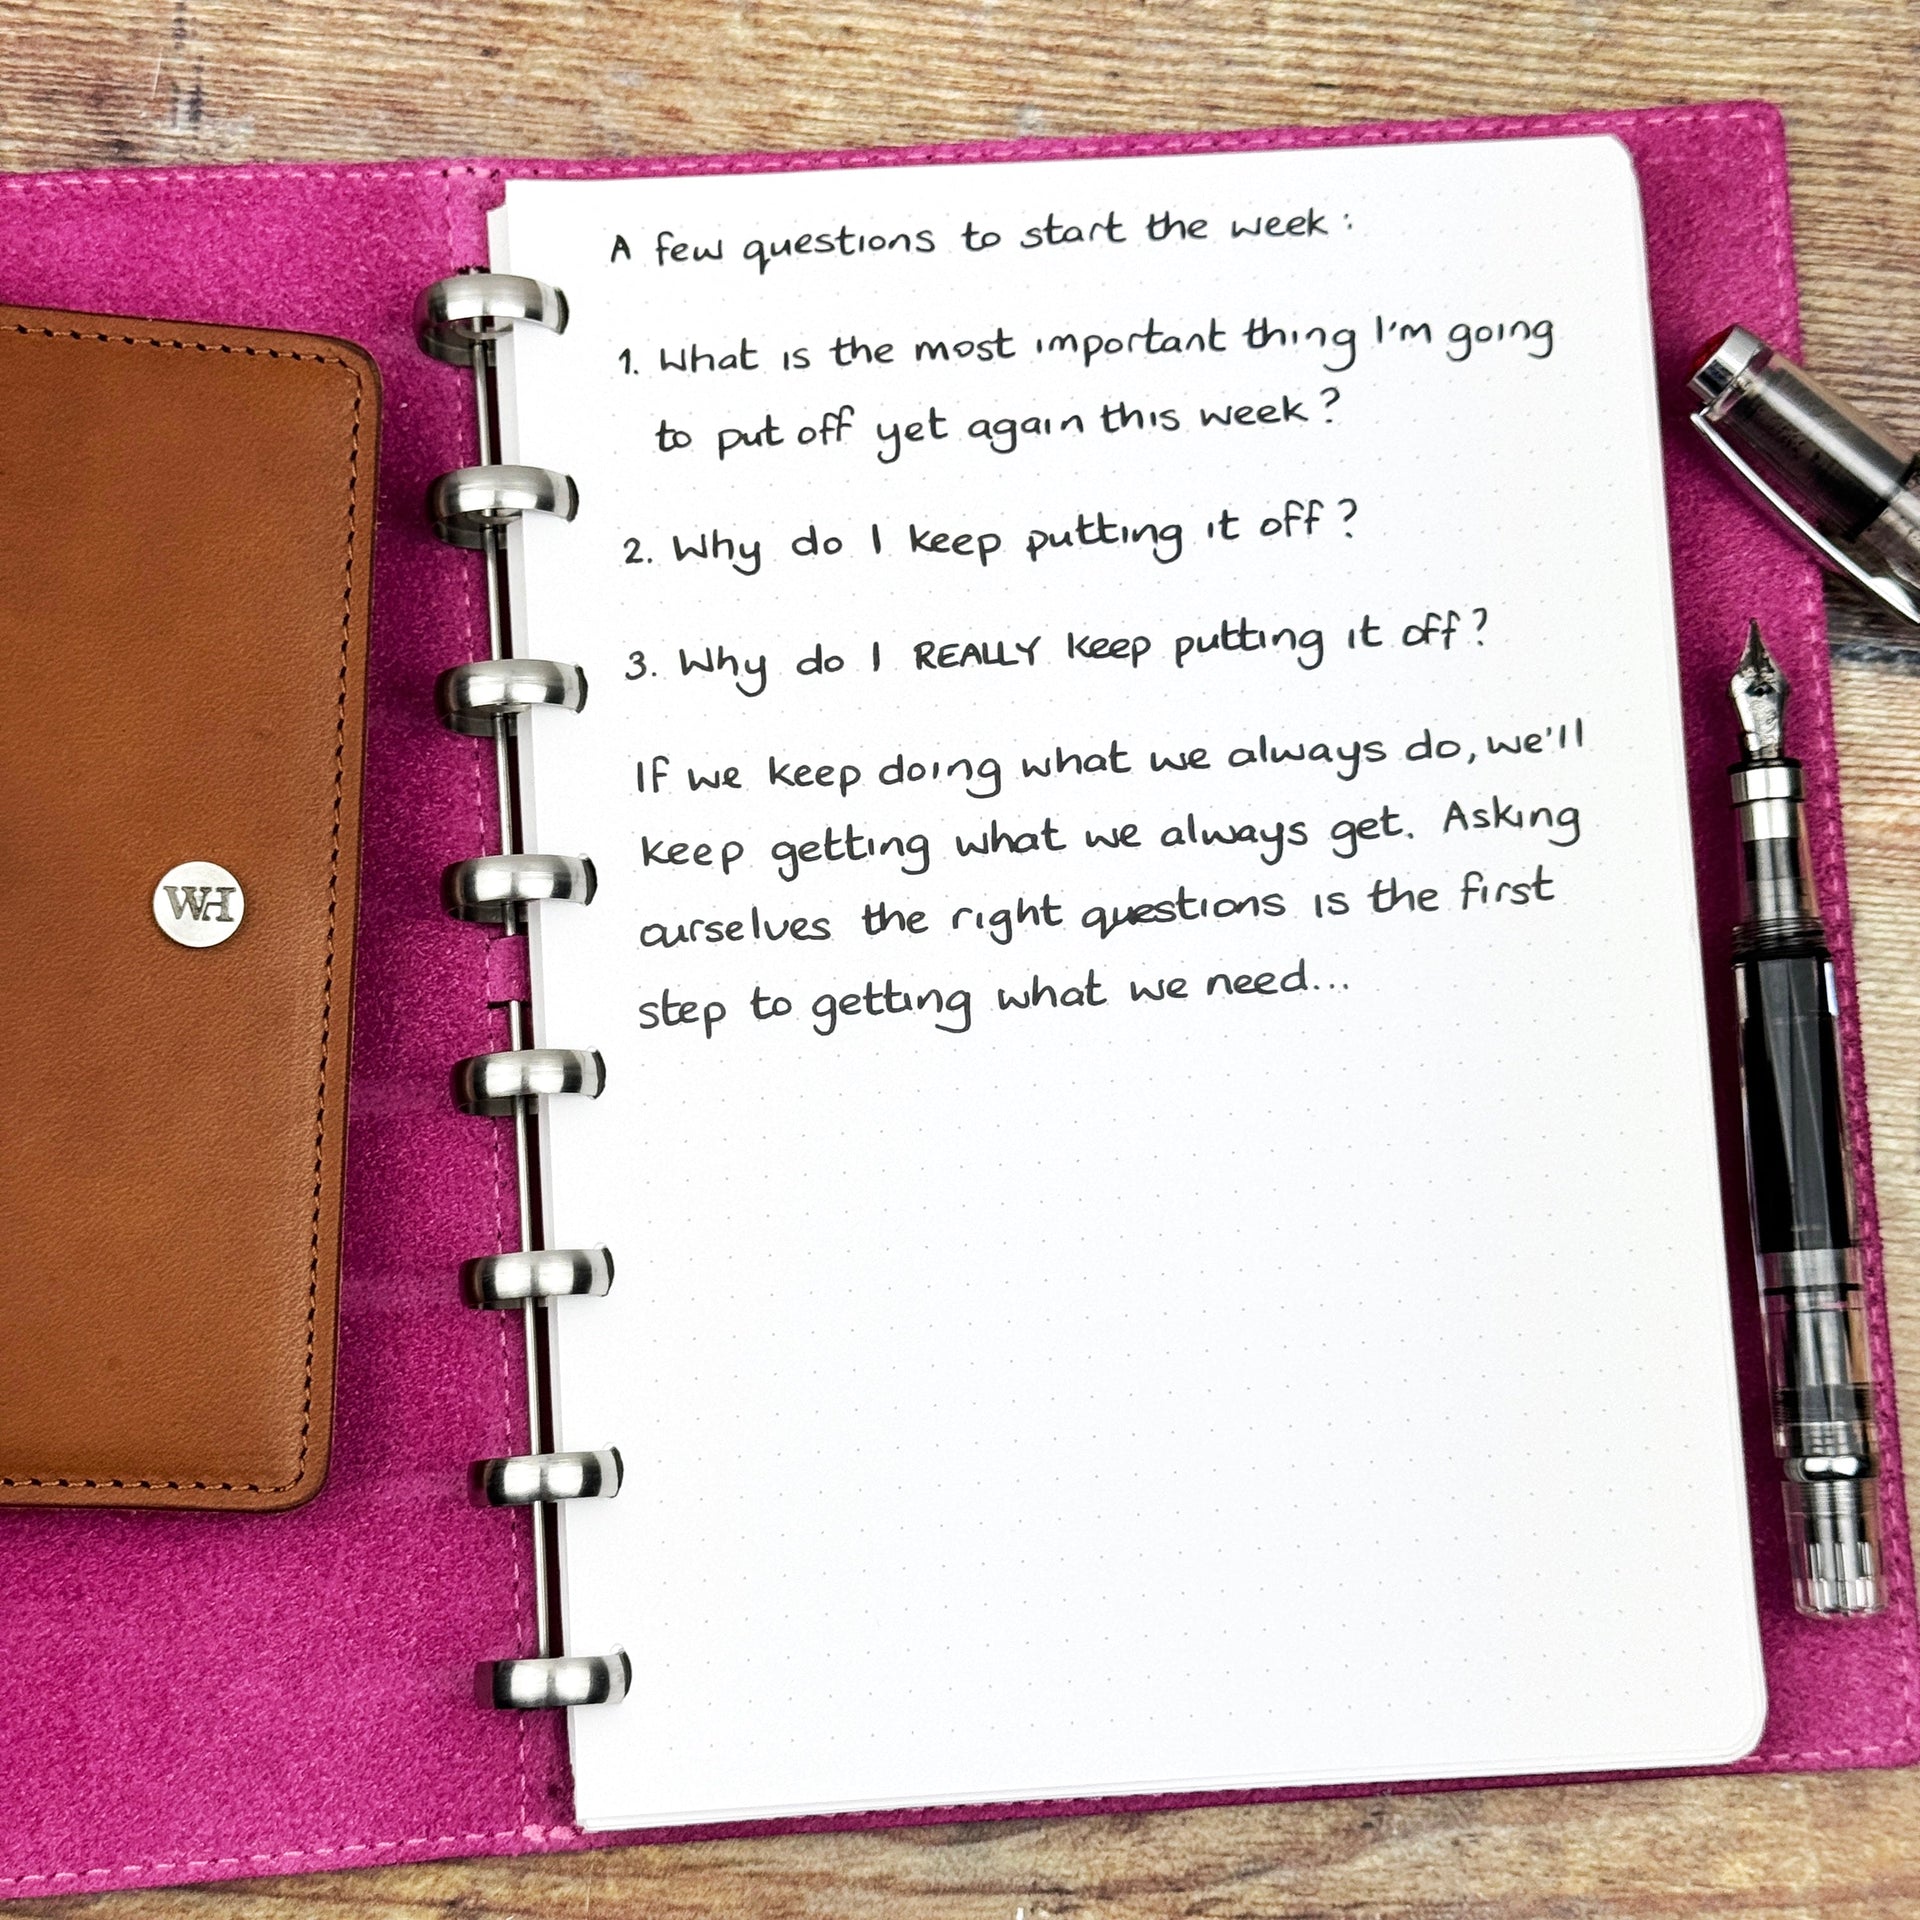 A few questions to start the week:
1. What is the most important thing I'm going
to put off yet again this week?
2. Why do I keep putting it off?
3. Why do I REALLY keep putting it off?
If we keep doing what we always do, we'll
keep getting what we always get. Asking
ourselves the right questions is the first
step to getting what we need...
WH